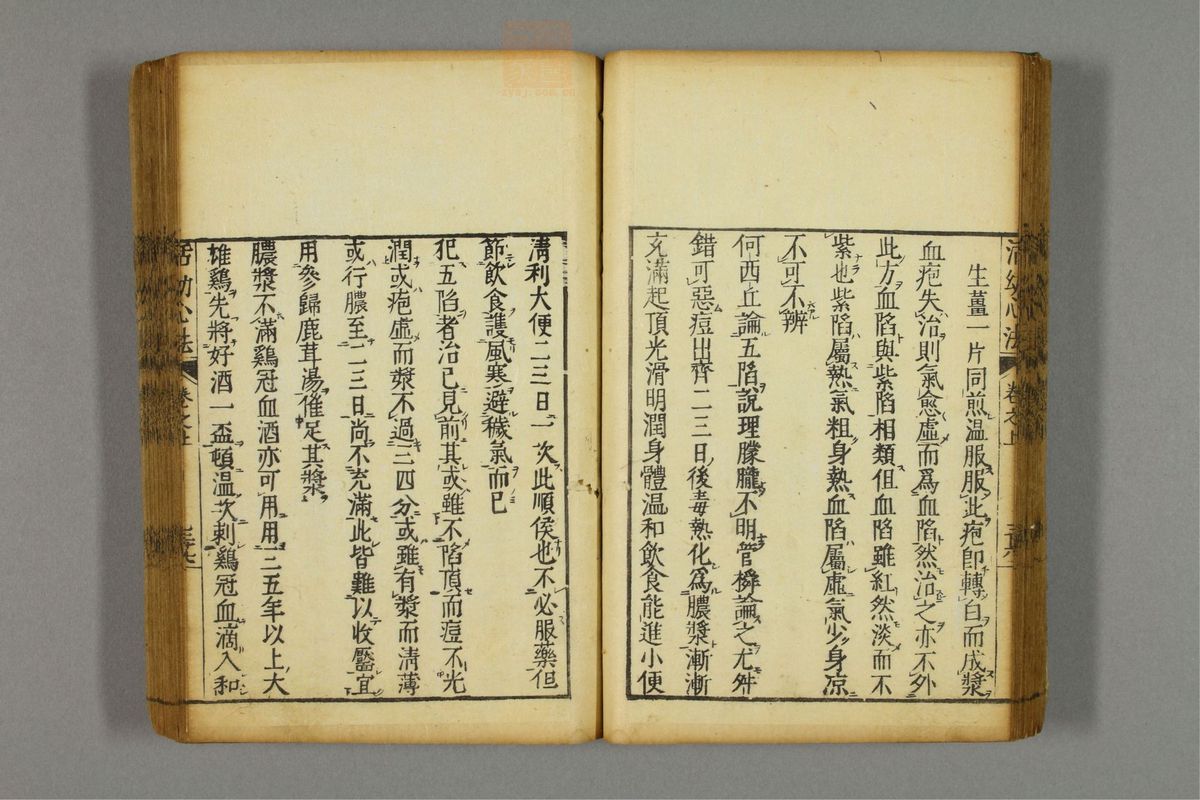 生薑一片同煎温服服此疱即轉白而成漿
血疱失治則氣愈虛而爲血陷然治之亦不外
此方血陷與紫陷相類但血陷雖紅然淡而不
紫也紫陷屬熱氣粗身熱血陷屬虛氣少身凉
不可不辨
何西丘論五陷說理朦朧不明管橓論之尤舛
錯可惡痘出齊二三日後毒熱化爲膿漿漸漸
充滿起頂光滑明潤身體温和飮食能進小便
清利大便二三日一次此順侯也不必服藥但
節飮食護風寒避穢氣而已
犯五陷者治已見前其或雖不陷頂而痘不光
潤或疱虛而漿不過三四分或雖有漿而清薄
或行膿至一二三日尚不充滿此皆難以收靨宜
用參歸鹿茸湯催足其漿
膿漿不滿鷄冠血酒亦可用用三五年以上大
雄鷄先將好酒一盃頓温次刺鷄冠血滴入和
活幼心法 卷之上